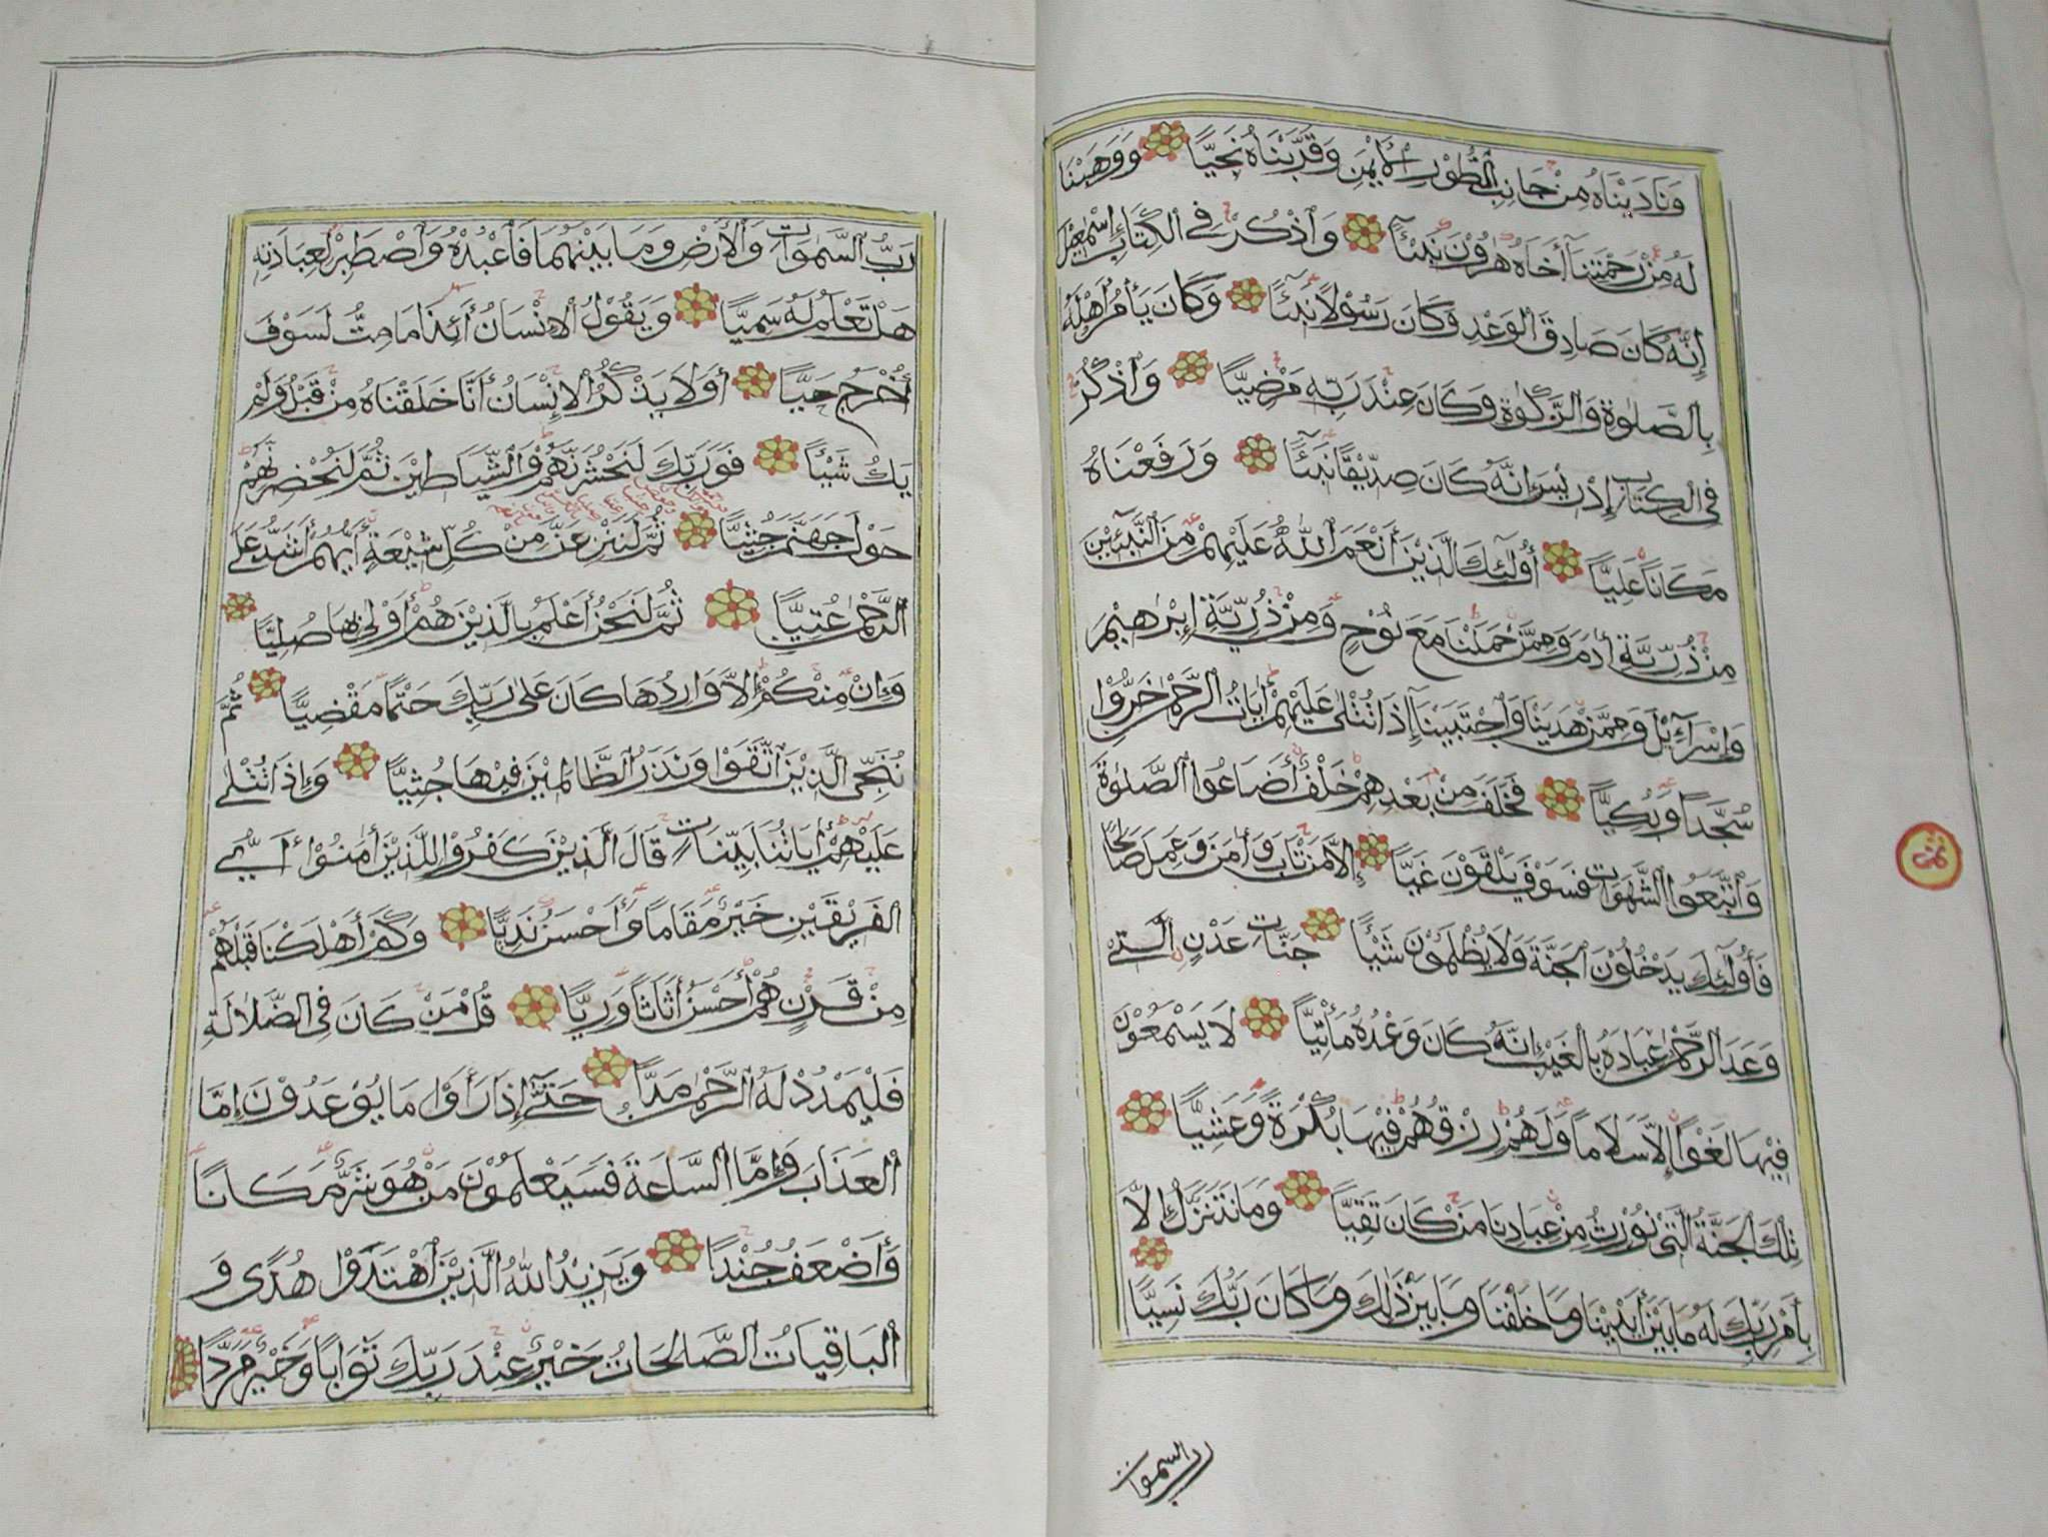 وَنَادَيْنَاهُ مِنْ جَانِبِ ٱلطُّوْرِ ٱلْأَيْمَنِ وَقَرَّبْنَاهُ نَجِيًّا وَوَهَبْنَا
لَهُ مِنْ رَحْمَتِنَآ أَخَاهُ هٰرُوْنَ نَبِيْئًا وَٱذْكُرْ فِي ٱلْكِتَابِ إِسْمٰعِيْلَ
إِنَّهُ كَانَ صَادِقَ ٱلْوَعْدِ وَكَانَ رَسُوْلًا نَبِيْئًا وَكَانَ يَأْمُرُ أَهْلَهُ
بِالصَّلٰوةِ وَالزَّكٰوةِ وَكَانَ عِنْدَ رَبِّهِ مَرْضِيًّا وَٱذْكُرْ
فِي ٱلْكِتَابِ إِدْرِيْسَ إِنَّهُ كَانَ صِدِّيْقًا نَبِيْئًا وَرَفَعْنَاهُ
مَكَانًا عَلِيًّا أُولٰٓئِكَ الَّذِيْنَ أَنْعَمَ ٱللّٰهُ عَلَيْهِمْ مِنَ ٱلنَّبِيْئِيْنَ
مِنْ ذُرِّيَّةِ أٰدَمَ وَمِمَّنْ حَمَلْنَا مَعَ نُوْحٍ وَمِنْ ذُرِّيَّةِ إِبْرٰهِيْمَ
وَإِسْرَآءِيْلَ وَمِمَّنْ هَدَيْنَا وَٱجْتَبَيْنَآ إِذَا تُتْلٰى عَلَيْهِمْ أٰيَاتُ ٱلرَّحْمٰنِ خَرُّوْا
سُجَّدًا وَبُكِيًّا فَخَلَفَ مِنْ بَعْدِهِمْ خَلْفٌ أَضَاعُوا ٱلصَّلٰوةَ
وَٱتَّبَعُوا ٱلشَّهَوَاتِ فَسَوْفَ يَلْقَوْنَ غَيًّا إِلَّا مَنْ تَابَ وَأٰمَنَ وَعَمِلَ صَالِحًا
فَأُولٰٓئِكَ يَدْخُلُوْنَ ٱلْجَنَّةَ وَلَا يُظْلَمُوْنَ شَيْئًا جَنَّاتِ عَدْنٍ ٱلَّتِيْ
وَعَدَ ٱلرَّحْمٰنُ عِبَادَهُ بِالْغَيْبِ إِنَّهُ كَانَ وَعْدُهُ مَأْتِيًّا لَا يَسْمَعُوْنَ
فِيْهَا لَغْوًا إِلَّا سَلَامًا وَلَهُمْ رِزْقُهُمْ فِيْهَا بُكْرَةً وَعَشِيًّا
تِلْكَ ٱلْجَنَّةُ الَّتِيْ نُوْرِثُ مِنْ عِبَادِنَا مَنْ كَانَ تَقِيًّا وَمَا نَتَنَزَّلُ إِلَّا
بِأَمْرِ رَبِّكَ لَهُ مَا بَيْنَ أَيْدِيْنَا وَمَا خَلْفَنَا وَمَا بَيْنَ ذٰلِكَ وَمَا كَانَ رَبُّكَ نَسِيًّا
رب السموات
رَبُّ السَّمٰوَاتِ وَٱلْأَرْضِ وَمَا بَيْنَهُمَا فَٱعْبُدْهُ وَٱصْطَبِرْ لِعِبَادَتِهِ
هَلْ تَعْلَمُ لَهُ سَمِيًّا وَيَقُوْلُ ٱلْإِنْسَانُ أَئِذَا مَا مِتُّ لَسَوْفَ
أُخْرَجُ حَيًّا أَوَلَا يَذْكُرُ ٱلْإِنْسَانُ أَنَّا خَلَقْنَاهُ مِنْ قَبْلُ وَلَمْ
يَكُ شَيْئًا فَوَرَبِّكَ لَنَحْشُرَنَّهُمْ وَالشَّيَاطِيْنَ ثُمَّ لَنُحْضِرَنَّهُمْ
حَوْلَ جَهَنَّمَ جُثِيًّا ثُمَّ لَنَنْزِعَنَّ مِنْ كُلِّ شِيْعَةٍ أَيُّهُمْ أَشَدُّ عَلَى
ٱلرَّحْمٰنِ عُتِيًّا ثُمَّ لَنَحْنُ أَعْلَمُ بِالَّذِيْنَ هُمْ أَوْلٰى بِهَا صُلِيًّا
وَإِنْ مِنْكُمْ إِلَّا وَارِدُهَا كَانَ عَلٰى رَبِّكَ حَتْمًا مَقْضِيًّا ثُمَّ
نُنَجِّى الَّذِيْنَ ٱتَّقَوْا وَنَذَرُ ٱلظَّالِمِيْنَ فِيْهَا جُثِيًّا وَإِذَا تُتْلٰى
عَلَيْهِمْ أٰيَاتُنَا بَيِّنَاتٍ قَالَ ٱلَّذِيْنَ كَفَرُوْا لِلَّذِيْنَ أٰمَنُوْا أَيُّ
ٱلْفَرِيْقَيْنِ خَيْرٌ مَقَامًا وَأَحْسَنُ نَدِيًّا وَكَمْ أَهْلَكْنَا قَبْلَهُمْ
مِنْ قَرْنٍ هُمْ أَحْسَنُ أَثَاثًا وَرِيًّا قُلْ مَنْ كَانَ فِي الضَّلَالَةِ
فَلْيَمْدُدْ لَهُ ٱلرَّحْمٰنُ مَدًّا حَتّٰىٓ إِذَا رَأَوْا مَا يُوْعَدُوْنَ إِمَّا
ٱلْعَذَابَ وَإِمَّا ٱلسَّاعَةَ فَسَيَعْلَمُوْنَ مَنْ هُوَ شَرٌّ مَكَانًا
وَأَضْعَفُ جُنْدًا وَيَزِيْدُ اللّٰهُ الَّذِيْنَ ٱهْتَدَوْا هُدًى وَ
ٱلْبَاقِيَاتُ ٱلصَّالِحَاتُ خَيْرٌ عِنْدَ رَبِّكَ ثَوَابًا وَخَيْرٌ مَرَدًّا